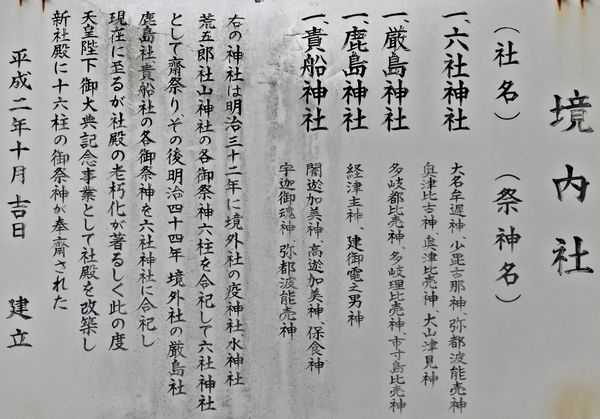 境内社
(社名) (祭神名)
一、六社神社 大名牟遅神、少毘古那神、弥都波能売神
奥津比古神、奥津比売神、大山津見神
一、厳島神社 多岐都比売神、多岐理比売神、市寸島比売神
一、鹿島神社 経津主神、建御雷之男神
一、貴船神社 闇遊加美神、高遊加美神、保食神
宇迦御魂神、弥都波能売神
右の神社は明治三十二年に境外社の疫神社、水神社
荒五郎社山神社の各御祭神六柱を合祀して六社神社
として齋祭り、その後明治四十四年 境外社の厳島社
鹿島社貴船社の各御祭神を六社神社に合祀し
現在に至るが社殿の老朽化が著るしく此の度
天皇陛下御大典記念事業として社殿を改築し
新社殿に十六柱の御祭神が奉齋された
平成二年十月吉日 建立